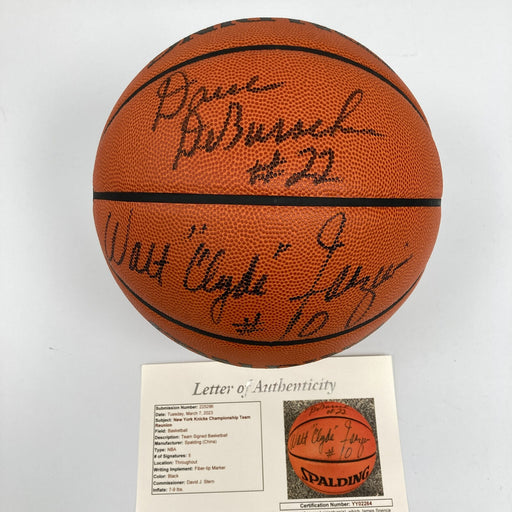 Dave
DeBusschere
#22
Walt "Clyde" Frazier
#10
Letter of Authenticity
Submission Number: 225286
Date: Tuesday, March 7, 2023
Subject: New York Knicks Championship Team
Reunion
Field: Basketball
Description: Team Signed Basketball
Manufacturer: Spalding (China)
Type: NBA
# of Signatures: 5
Location: Throughout
Writing Implement: Fiber-tip Marker
Color: Black
Commissioner: David J. Stern
Inflate: 7-9 lbs.
DeBusschere
#22
Walt "Clyde" Frazier
#10
SPALDING
Certification Number: YY02264
which James Spence